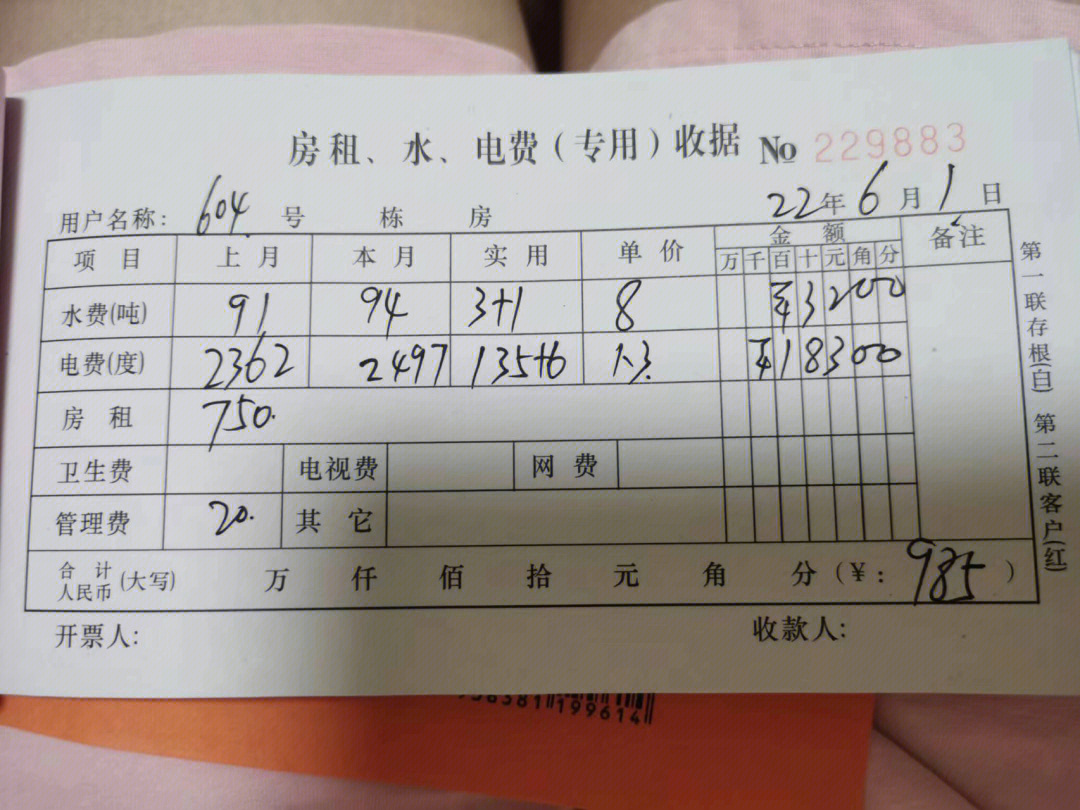 房租、水、电费(专用)收据 No 229883
用户名称: 604 号 栋 房 22年6月1日
项目 上月 本月 实用 单价 金额 备注
万 千 百 十 元 角 分
水费(吨) 91 94 3+1 8 ¥3200
电费(度) 2362 2497 135+6 1.3 ¥18300
房租 750.
卫生费 电视费 网费
管理费 20. 其它
合计人民币(大写) 万 仟 佰 拾 元 角 分(¥: 985)
开票人: 收款人:
第一联存根(白) 第二联客户(红)
199614